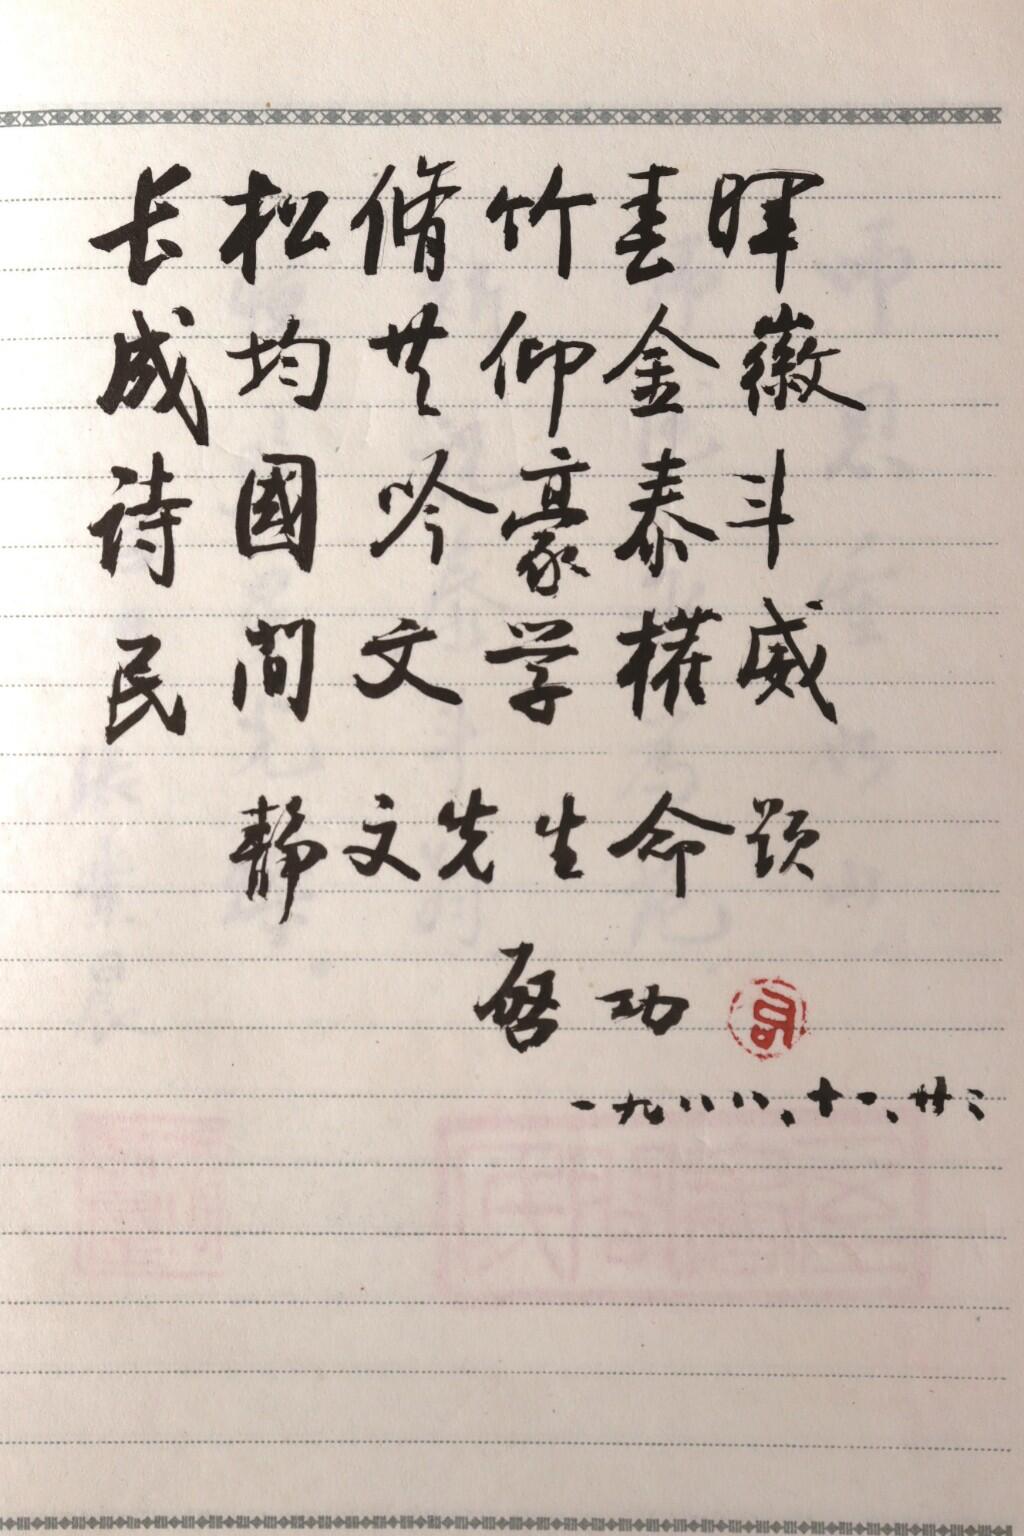 长松脩竹春晖
成均共仰金徽
诗國吟豪泰斗
民间文学權威
静文先生命题
啓功
一九八八、十一、廿二